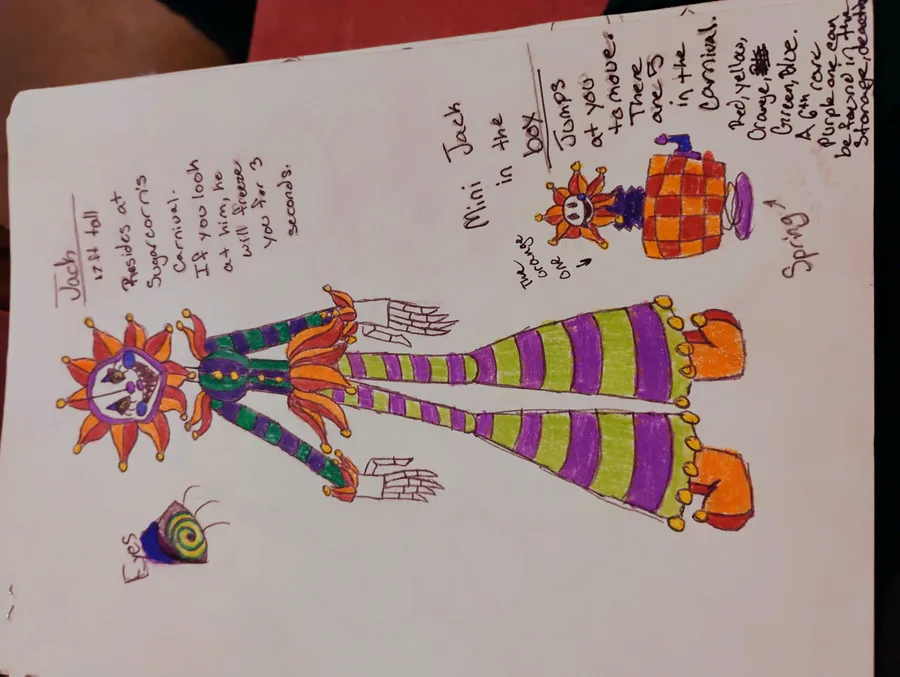 Jack
12 ft tall
Presides at
Sugarcorn's
Carnival.
If you look
at him, he
will freeze
you for 3
seconds.
Eyes
Mini Jack
in the
box
Jumps
at you
to move.
There
are 5
in the
Carnival.
Red, yellow,
Orange
Green, Blue.
A 6th rare
Purple one can
be found in the
Storage,
The
Orange
one
Spring